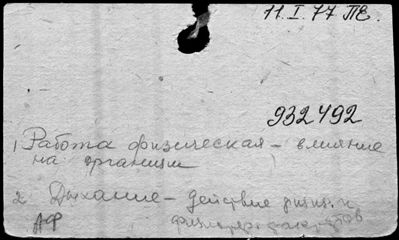 11.I.77 ПЕ.
932492
1 Работа физическая – влияние
на организм
2. Дыхание – действие физич. и
АФ